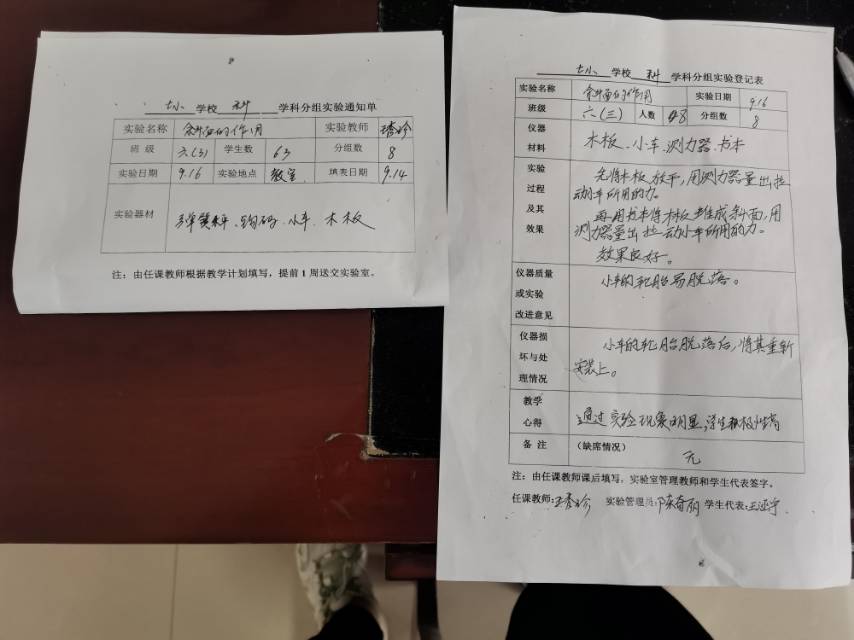 学校 科 学科分组实验通知单
实验名称 斜面的作用 实验教师
班级 六(3) 学生数 63 分组数 8
实验日期 9.16 实验地点 教室 填表日期 9.14
实验器材 弹簧秤、钩码、小车、木板
注：由任课教师根据教学计划填写，提前1周送交实验室。
学校 科 学科分组实验登记表
实验名称 斜面的作用 实验日期 9.16
班级 六(三) 人数 48 分组数 8
仪器
材料
木板、小车、测力器、书本
实验
过程
及其
效果
先将木板放平，用测力器量出拉
动小车所用的力。
再用书本将木板堆成斜面，用
测力器量出拉动小车所用的力。
效果良好。
仪器质量
或实验
改进意见
小车的轮胎易脱落。
仪器损
坏与处
理情况
小车的轮胎脱落后，将其重新
安装上。
教学
心得
通过实验现象明显，学生积极性高
备注 (缺席情况)
无
注：由任课教师课后填写，实验室管理教师和学生代表签字。
任课教师: 王秀珍 实验管理员: 陈奇丽 学生代表: